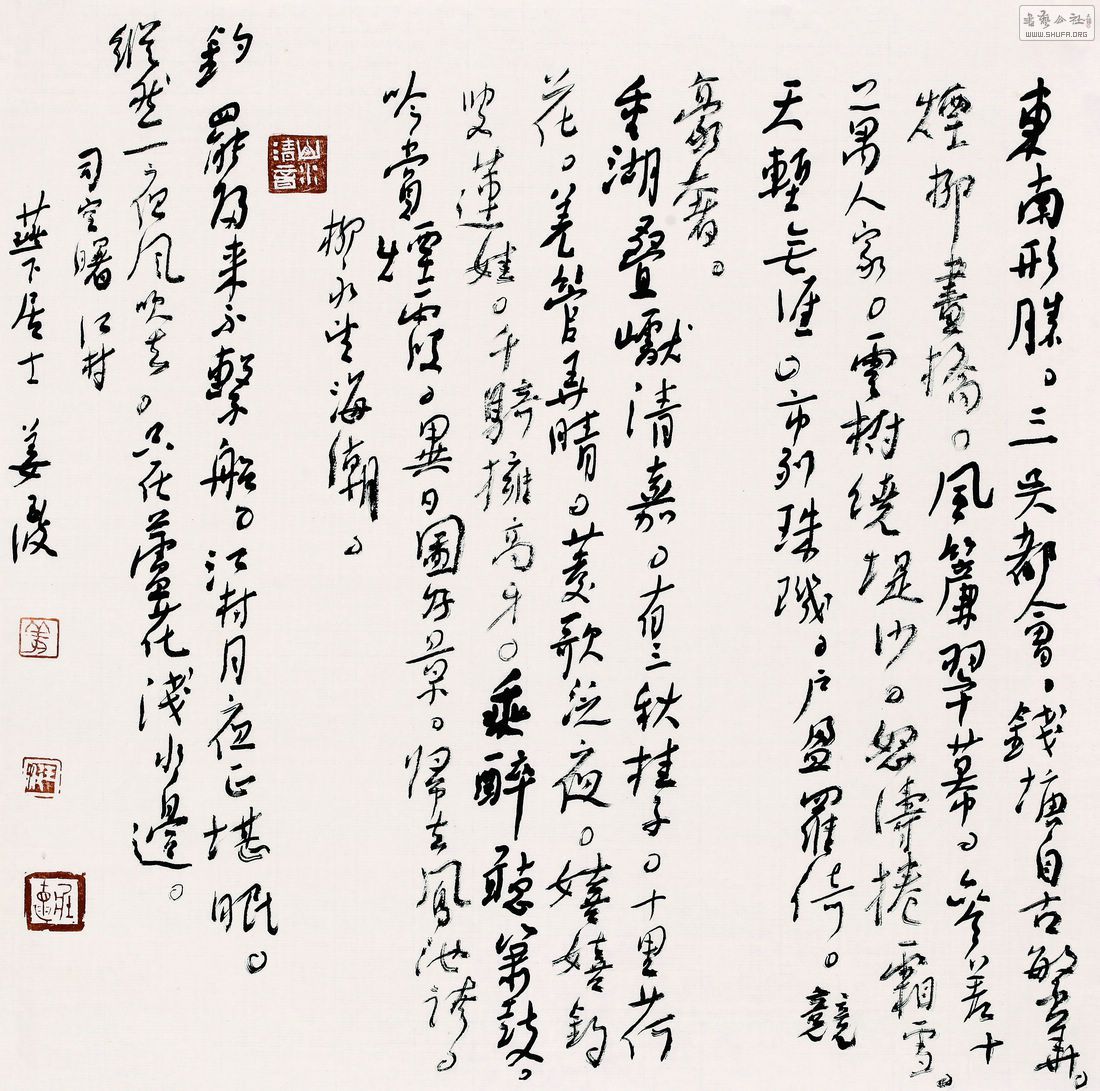 東南形勝。三吳都會、錢塘自古繁華。
煙柳畫橋。風簾翠幕。參差十
萬人家。雲樹繞堤沙。怒濤捲霜雪。
天塹無涯。市列珠璣。戶盈羅綺。競
豪奢。
重湖疊巘清嘉。有三秋桂子。十里荷
花。羌管弄晴。菱歌泛夜。嬉嬉釣
叟蓮娃。千騎擁高牙。乘醉聽簫鼓。
吟賞煙霞。異日圖好景。歸去鳳池誇。
柳永望海潮。
山水清音
釣罷歸來不繫船。江村月夜正堪眠。
縱然一夜風吹去。只在蘆花淺水邊。
司空曙江村
燕下居士 姜
WWW.SHUFA.ORG